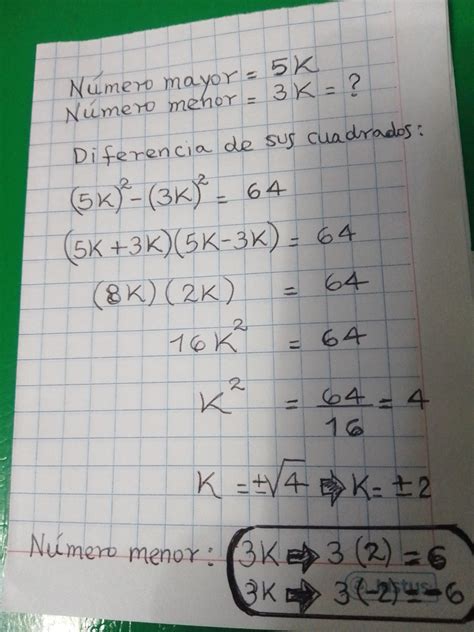 Número mayor = 5K
Número menor = 3K = ?
Diferencia de sus cuadrados:
(5K)² - (3K)² = 64
(5K + 3K)(5K - 3K) = 64
(8K)(2K) = 64
16K² = 64
K² = 64/16 = 4
K = ±√4 ⇒ K = ±2
Número menor: 3K ⇒ 3(2) = 6
3K ⇒ 3(-2) = -6